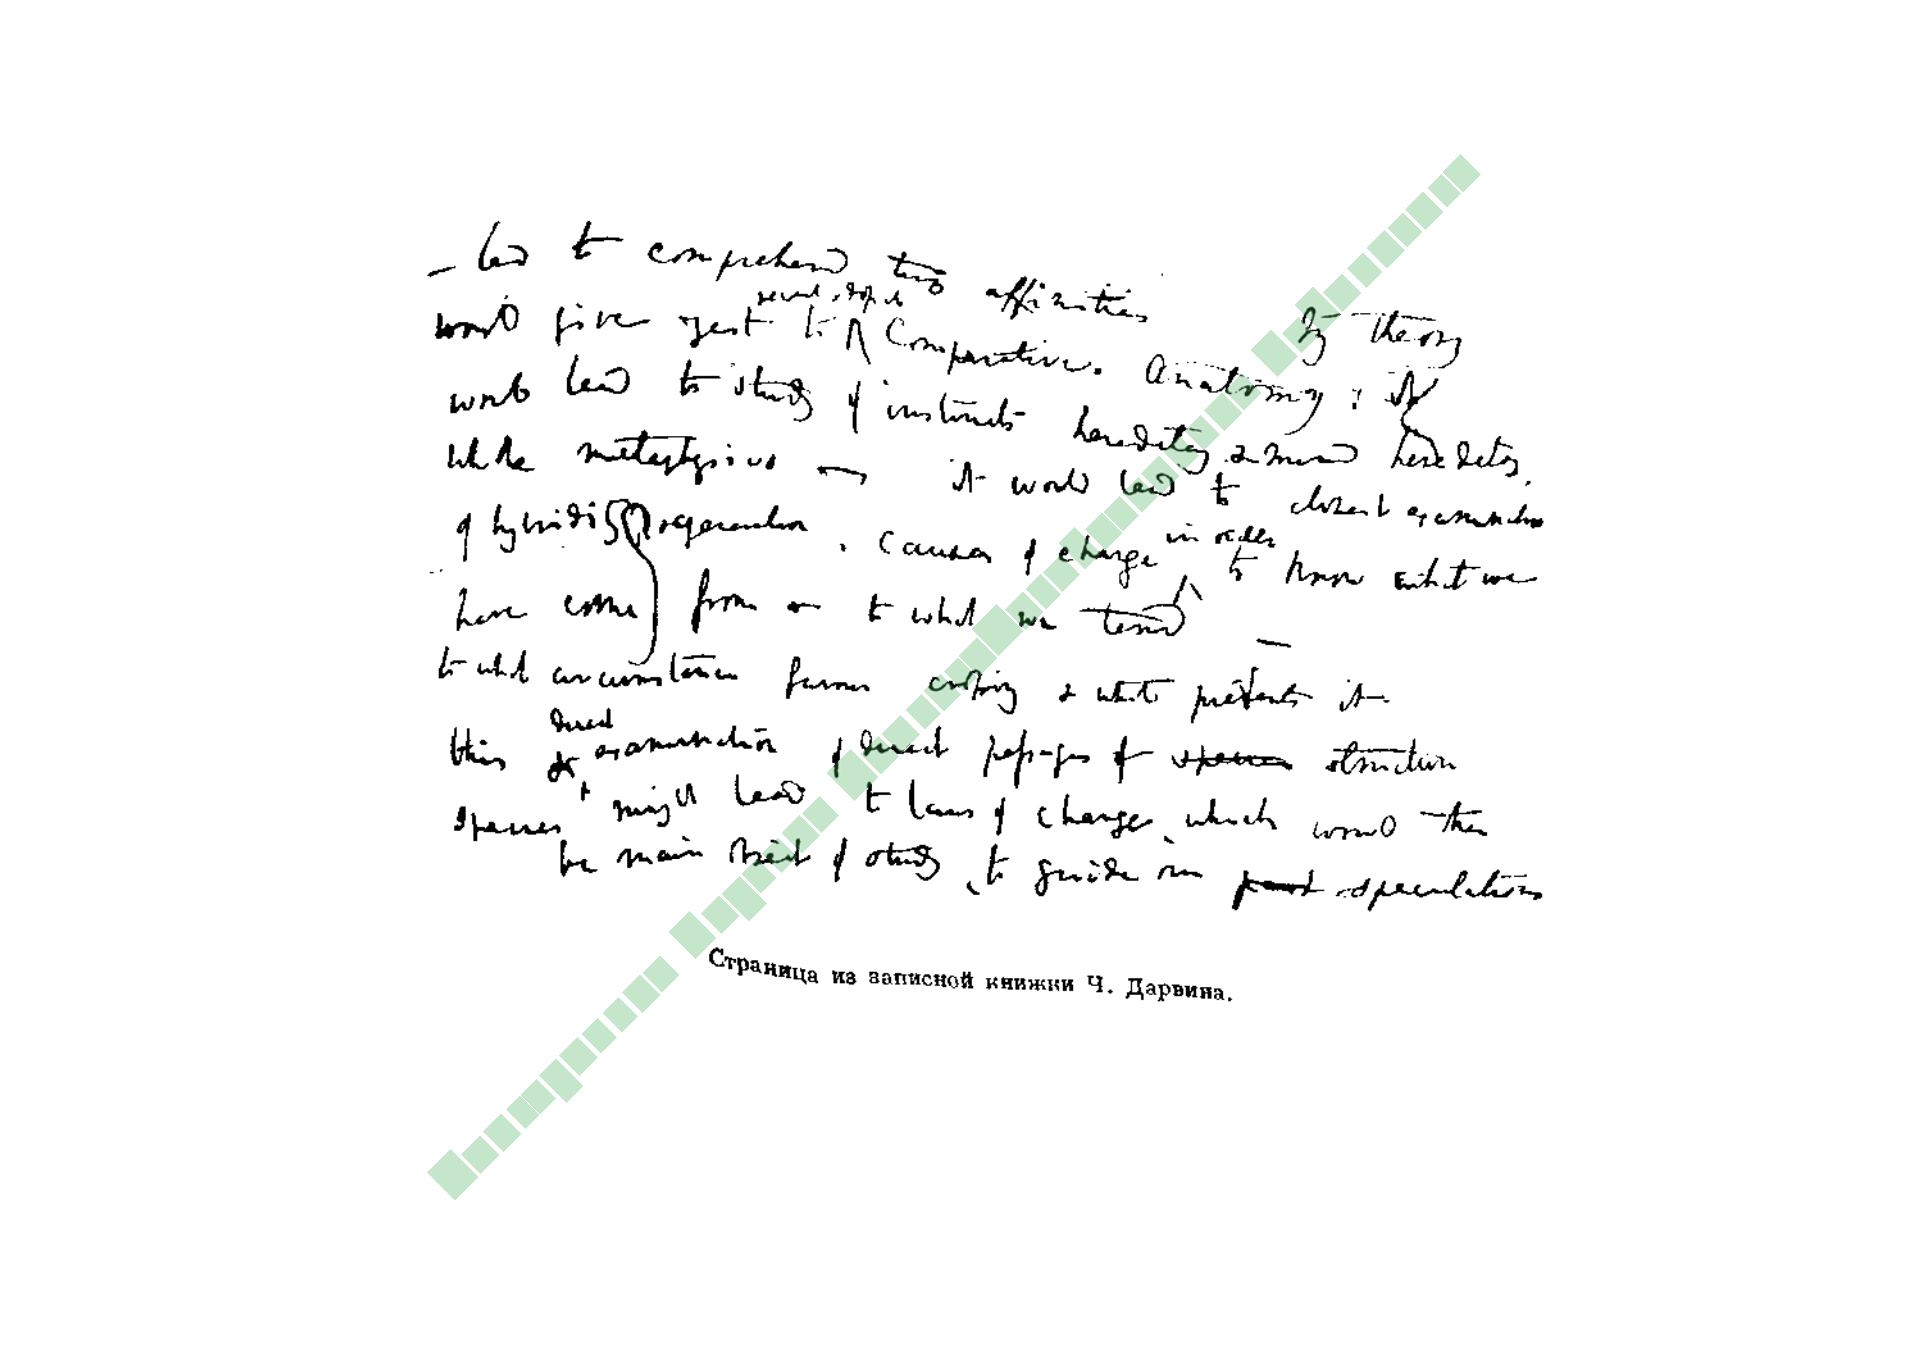 — lead to comprehend true affinities
My theory
would give zest to recent & fossil Comparative. Anatomy; it
would lead to study of instincts heredity & mind heredity,
whole metaphysics — it would lead to closest examination
of hybridity regeneration, causes of change in order to know what we
have come from & to what we tend —
to what circumstances favour crossing & what prevents it —
this & direct examination of direct passages of species structure
species might lead to laws of change, which would then
be main object of study, to guide our past speculations
Страница из записной книжки Ч. Дарвина.